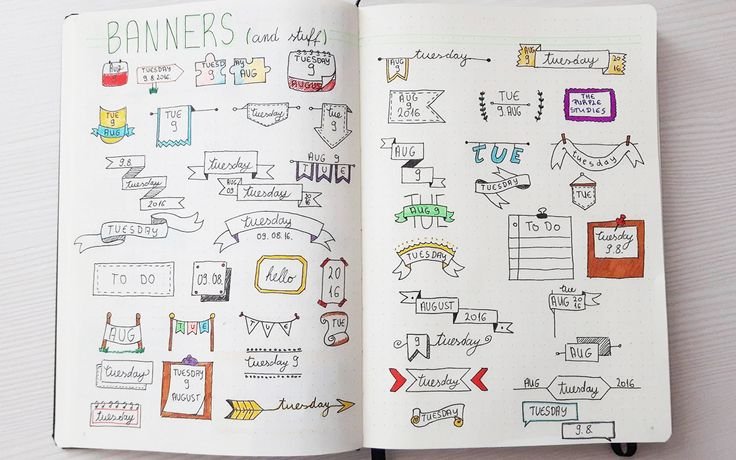 BANNERS (and stuff)
AUG
9
TUESDAY
9.8.2016.
TUESDAY
9
MY
AUG
TUESDAY
9
AUGUST
TUE
9
AUG
TUE
9
tuesday
TUE
9
9.8.
tuesday
2016
tuesday
AUG
09
tuesday
2016
AUG 9
TUE
TUESDAY
tuesday
09.08.16.
TO DO
09.08.
hello
20
16
AUG
TUE
TUE
TUE
tuesday
TUESDAY
9
AUGUST
tuesday 9
tuesday
tuesday
AUG
9
tuesday
tuesday
20
16
AUG
2016
TUE
9.AUG
THE
PURPLE
STUDIES
AUG
9
TUE
tuesday
tuesday
TUE
TUE
AUG 9
TO DO
tuesday
9.8.
TUESDAY
AUGUST
2016
tue
AUG
20
16
9
tuesday
AUG
tuesday
AUG
tuesday
2016
TUESDAY
TUESDAY
9.8.